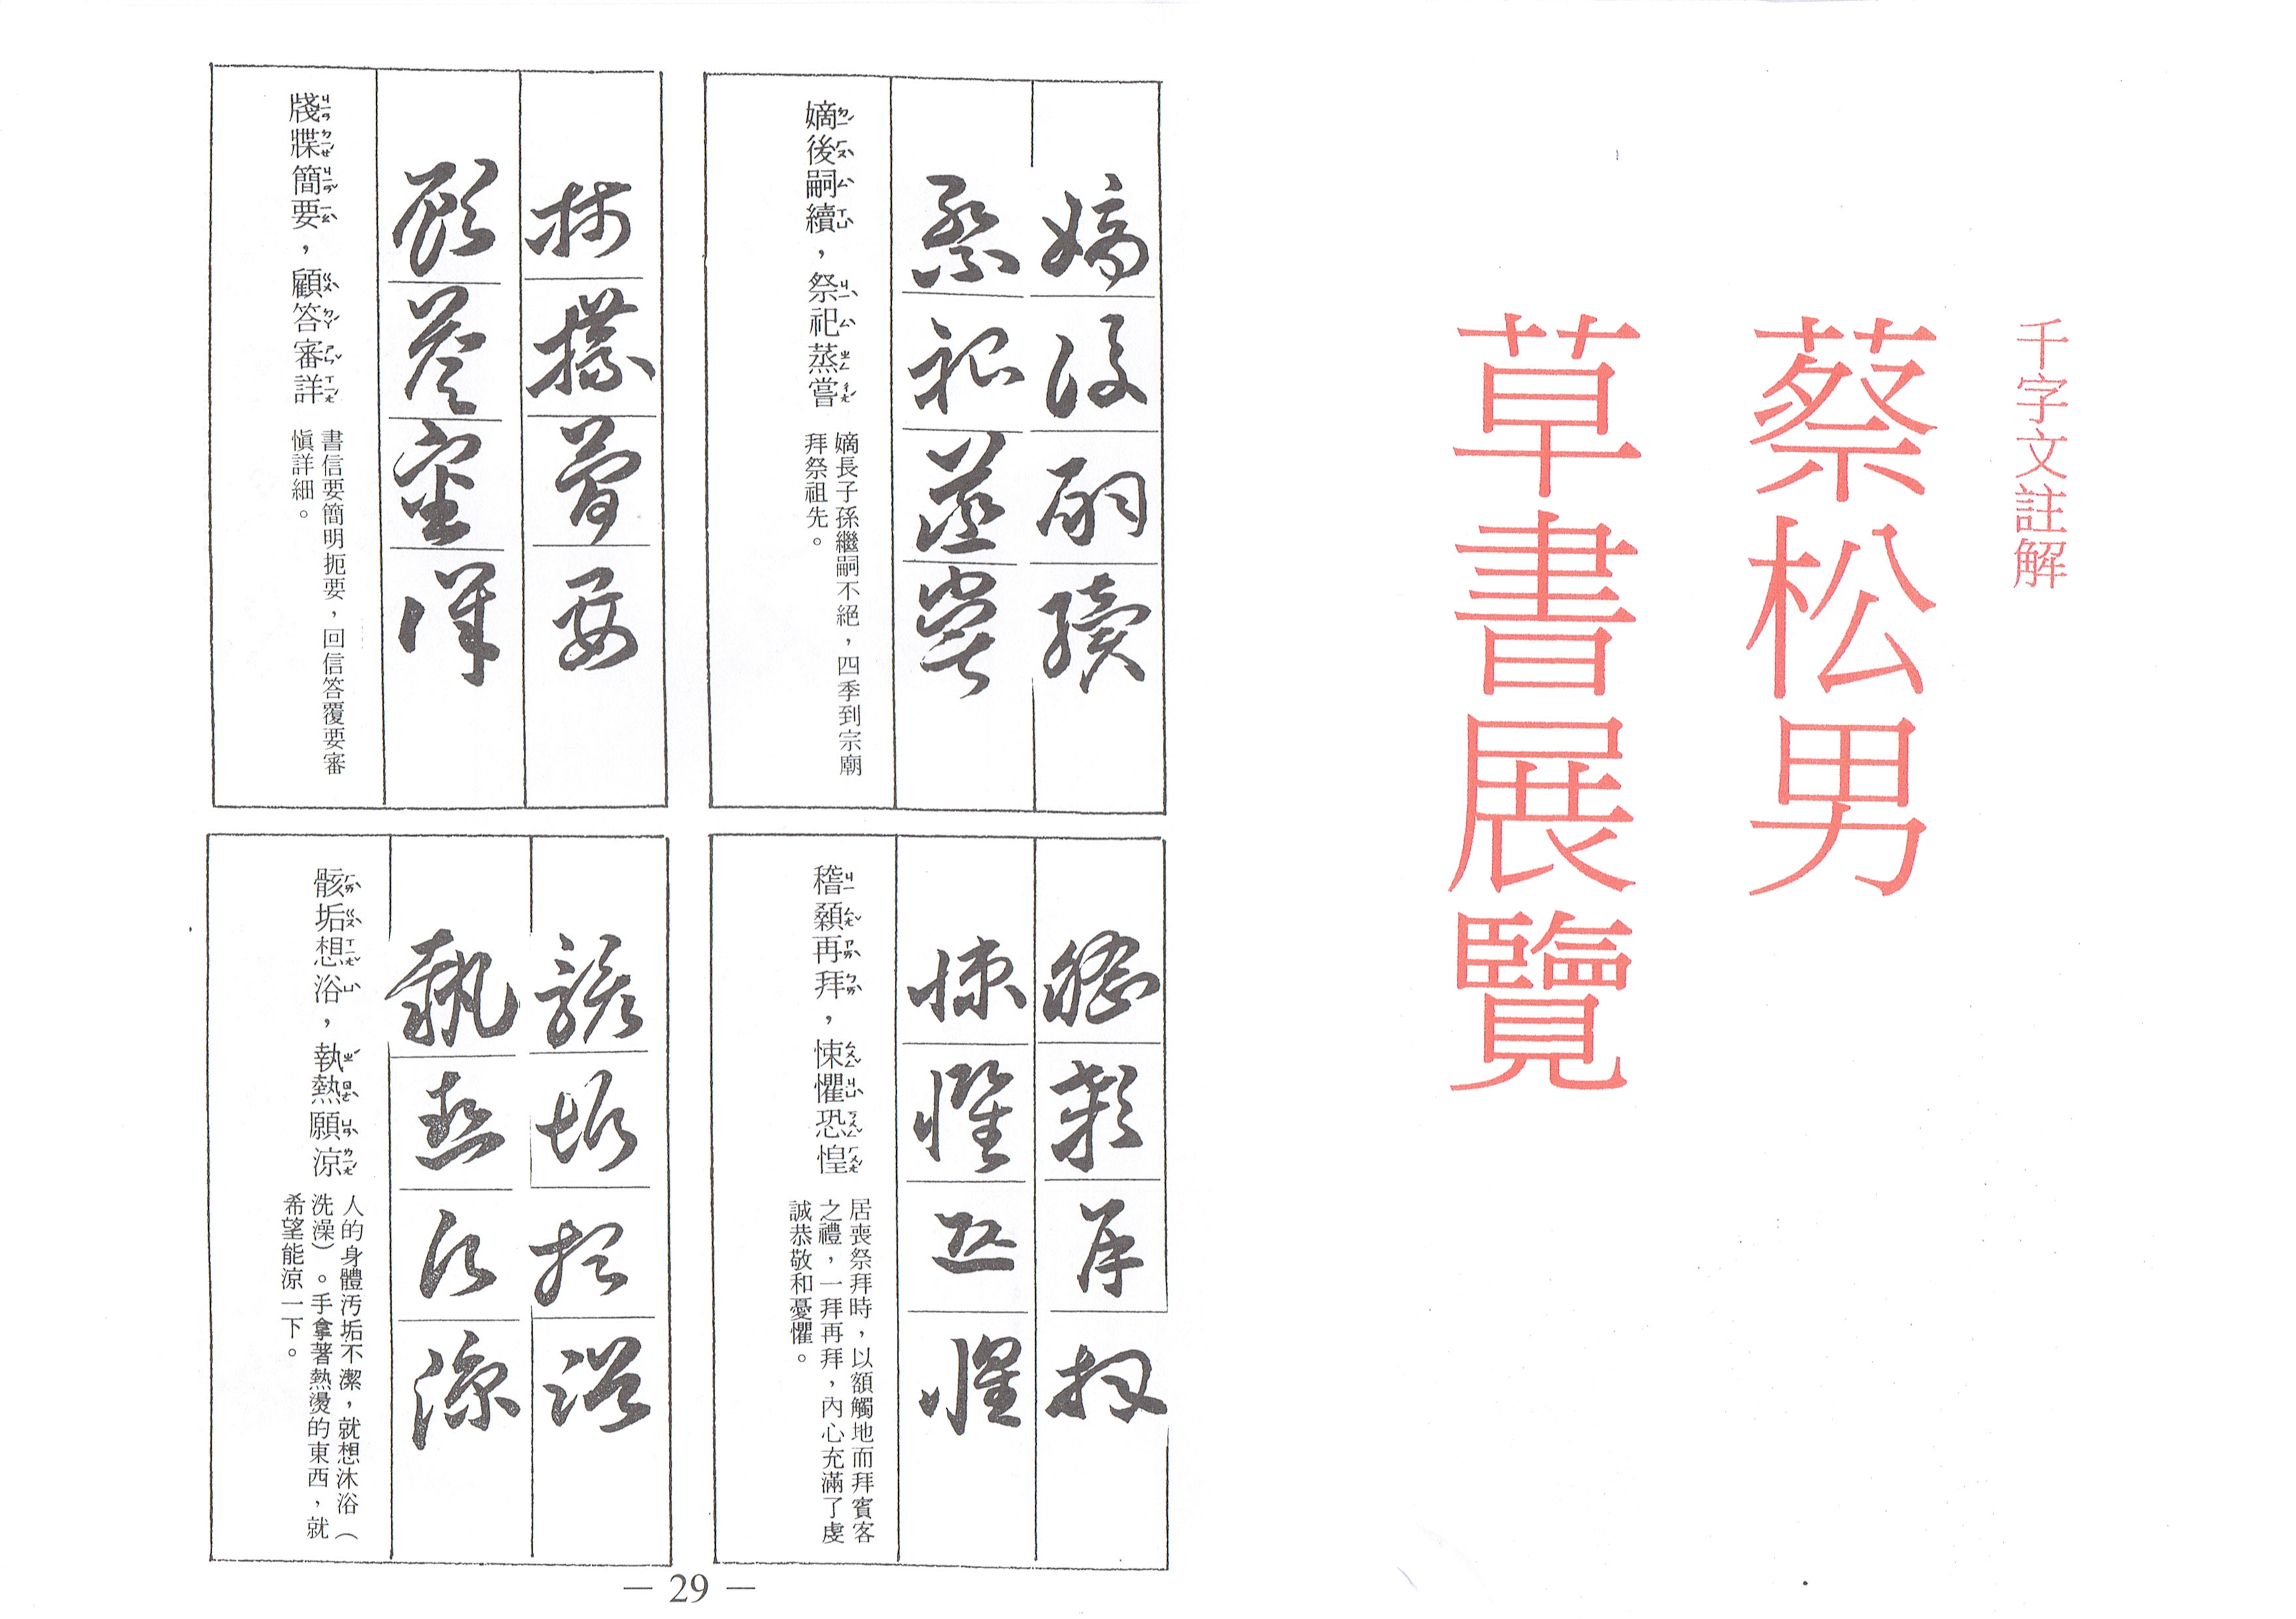 千字文註解
蔡松男
草書展覽
嫡後嗣續
祭祀蒸嘗
嫡後嗣續，祭祀蒸嘗
嫡長子孫繼嗣不絕，四季到宗廟
拜祭祖先。
稽顙再拜
悚懼恐惶
稽顙再拜，悚懼恐惶
居喪祭拜時，以額觸地而拜賓客
之禮，一拜再拜，內心充滿了虔
誠恭敬和憂懼。
牋牒簡要
顧答審詳
牋牒簡要，顧答審詳
書信要簡明扼要，回信答覆要審
慎詳細。
骸垢想浴
執熱願涼
骸垢想浴，執熱願涼
人的身體汚垢不潔，就想沐浴（
洗澡）。手拿著熱燙的東西，就
希望能涼一下。
— 29 —